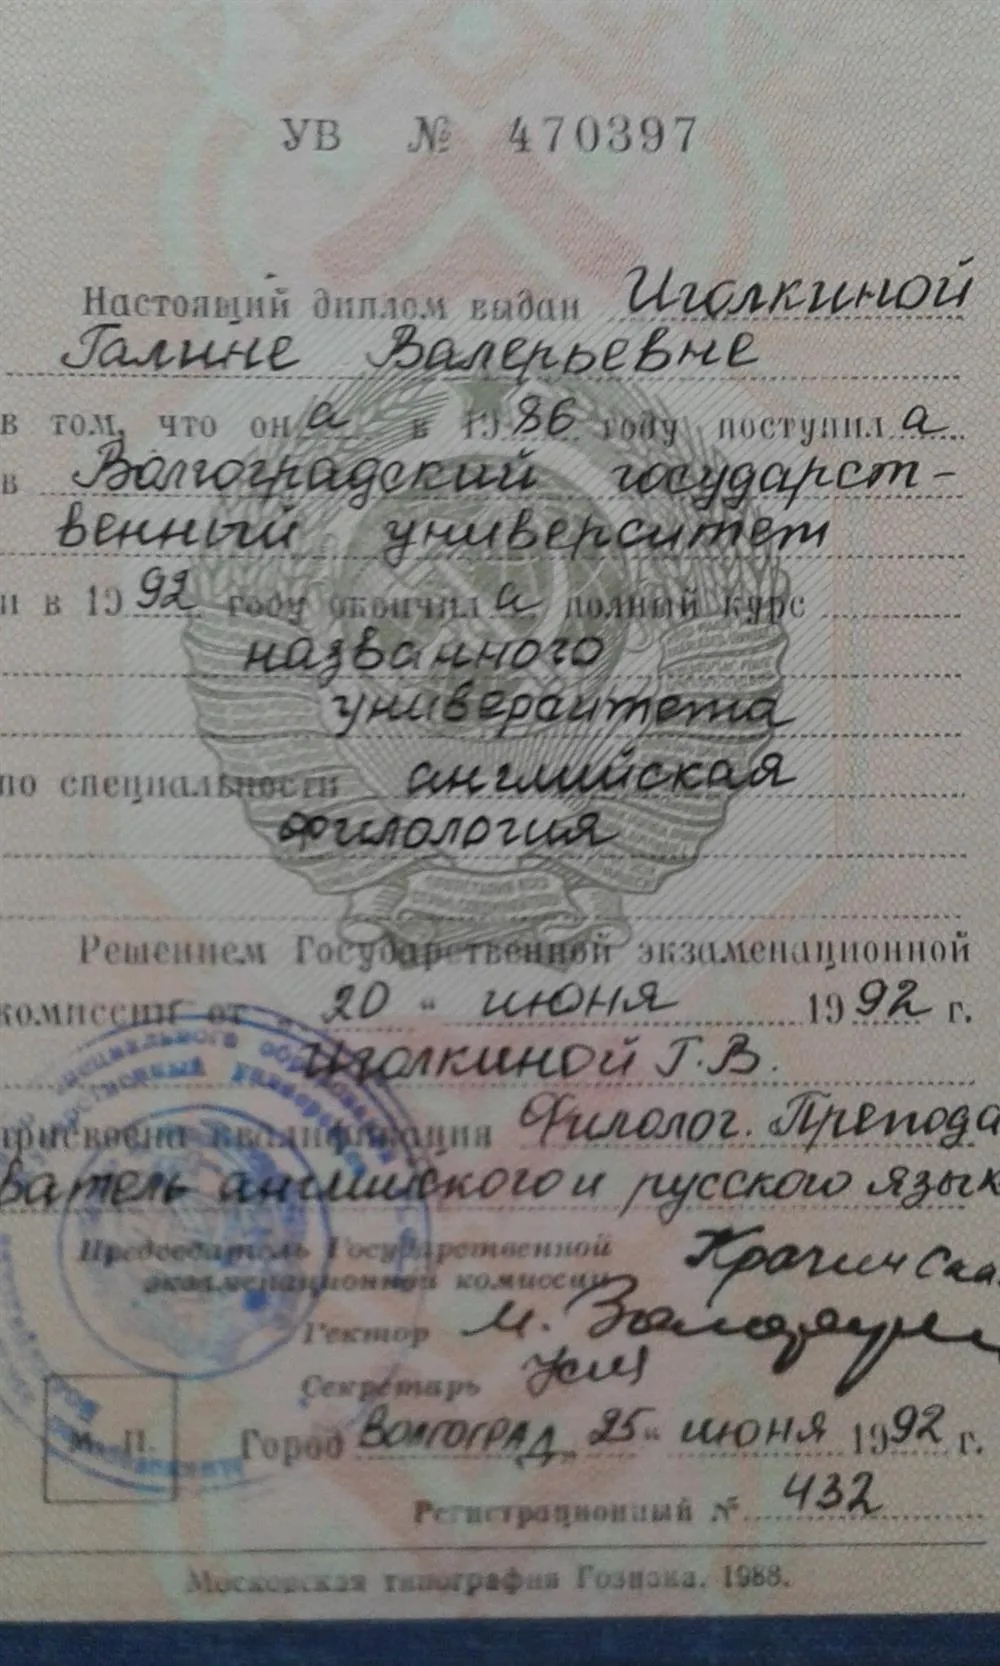 УВ № 470397
Настоящий диплом выдан Иголкиной
Галине Валерьевне
в том, что он а в 1986 году поступил а
в Волгоградский государст-
венный университет
и в 1992 году окончил а полный курс
названного
университета
по специальности английская
филология
Решением Государственной экзаменационной
комиссии от „ 20 “ июня 1992 г.
Иголкиной Г. В.
присвоена квалификация Филолог. Препода
ватель английского и русского язык
Председатель Государственной
экзаменационной комиссии
Ректор
Секретарь
М. П. Город Волгоград „ 25 “ июня 1992 г.
Регистрационный № 432
Московская типография Гознака. 1988.